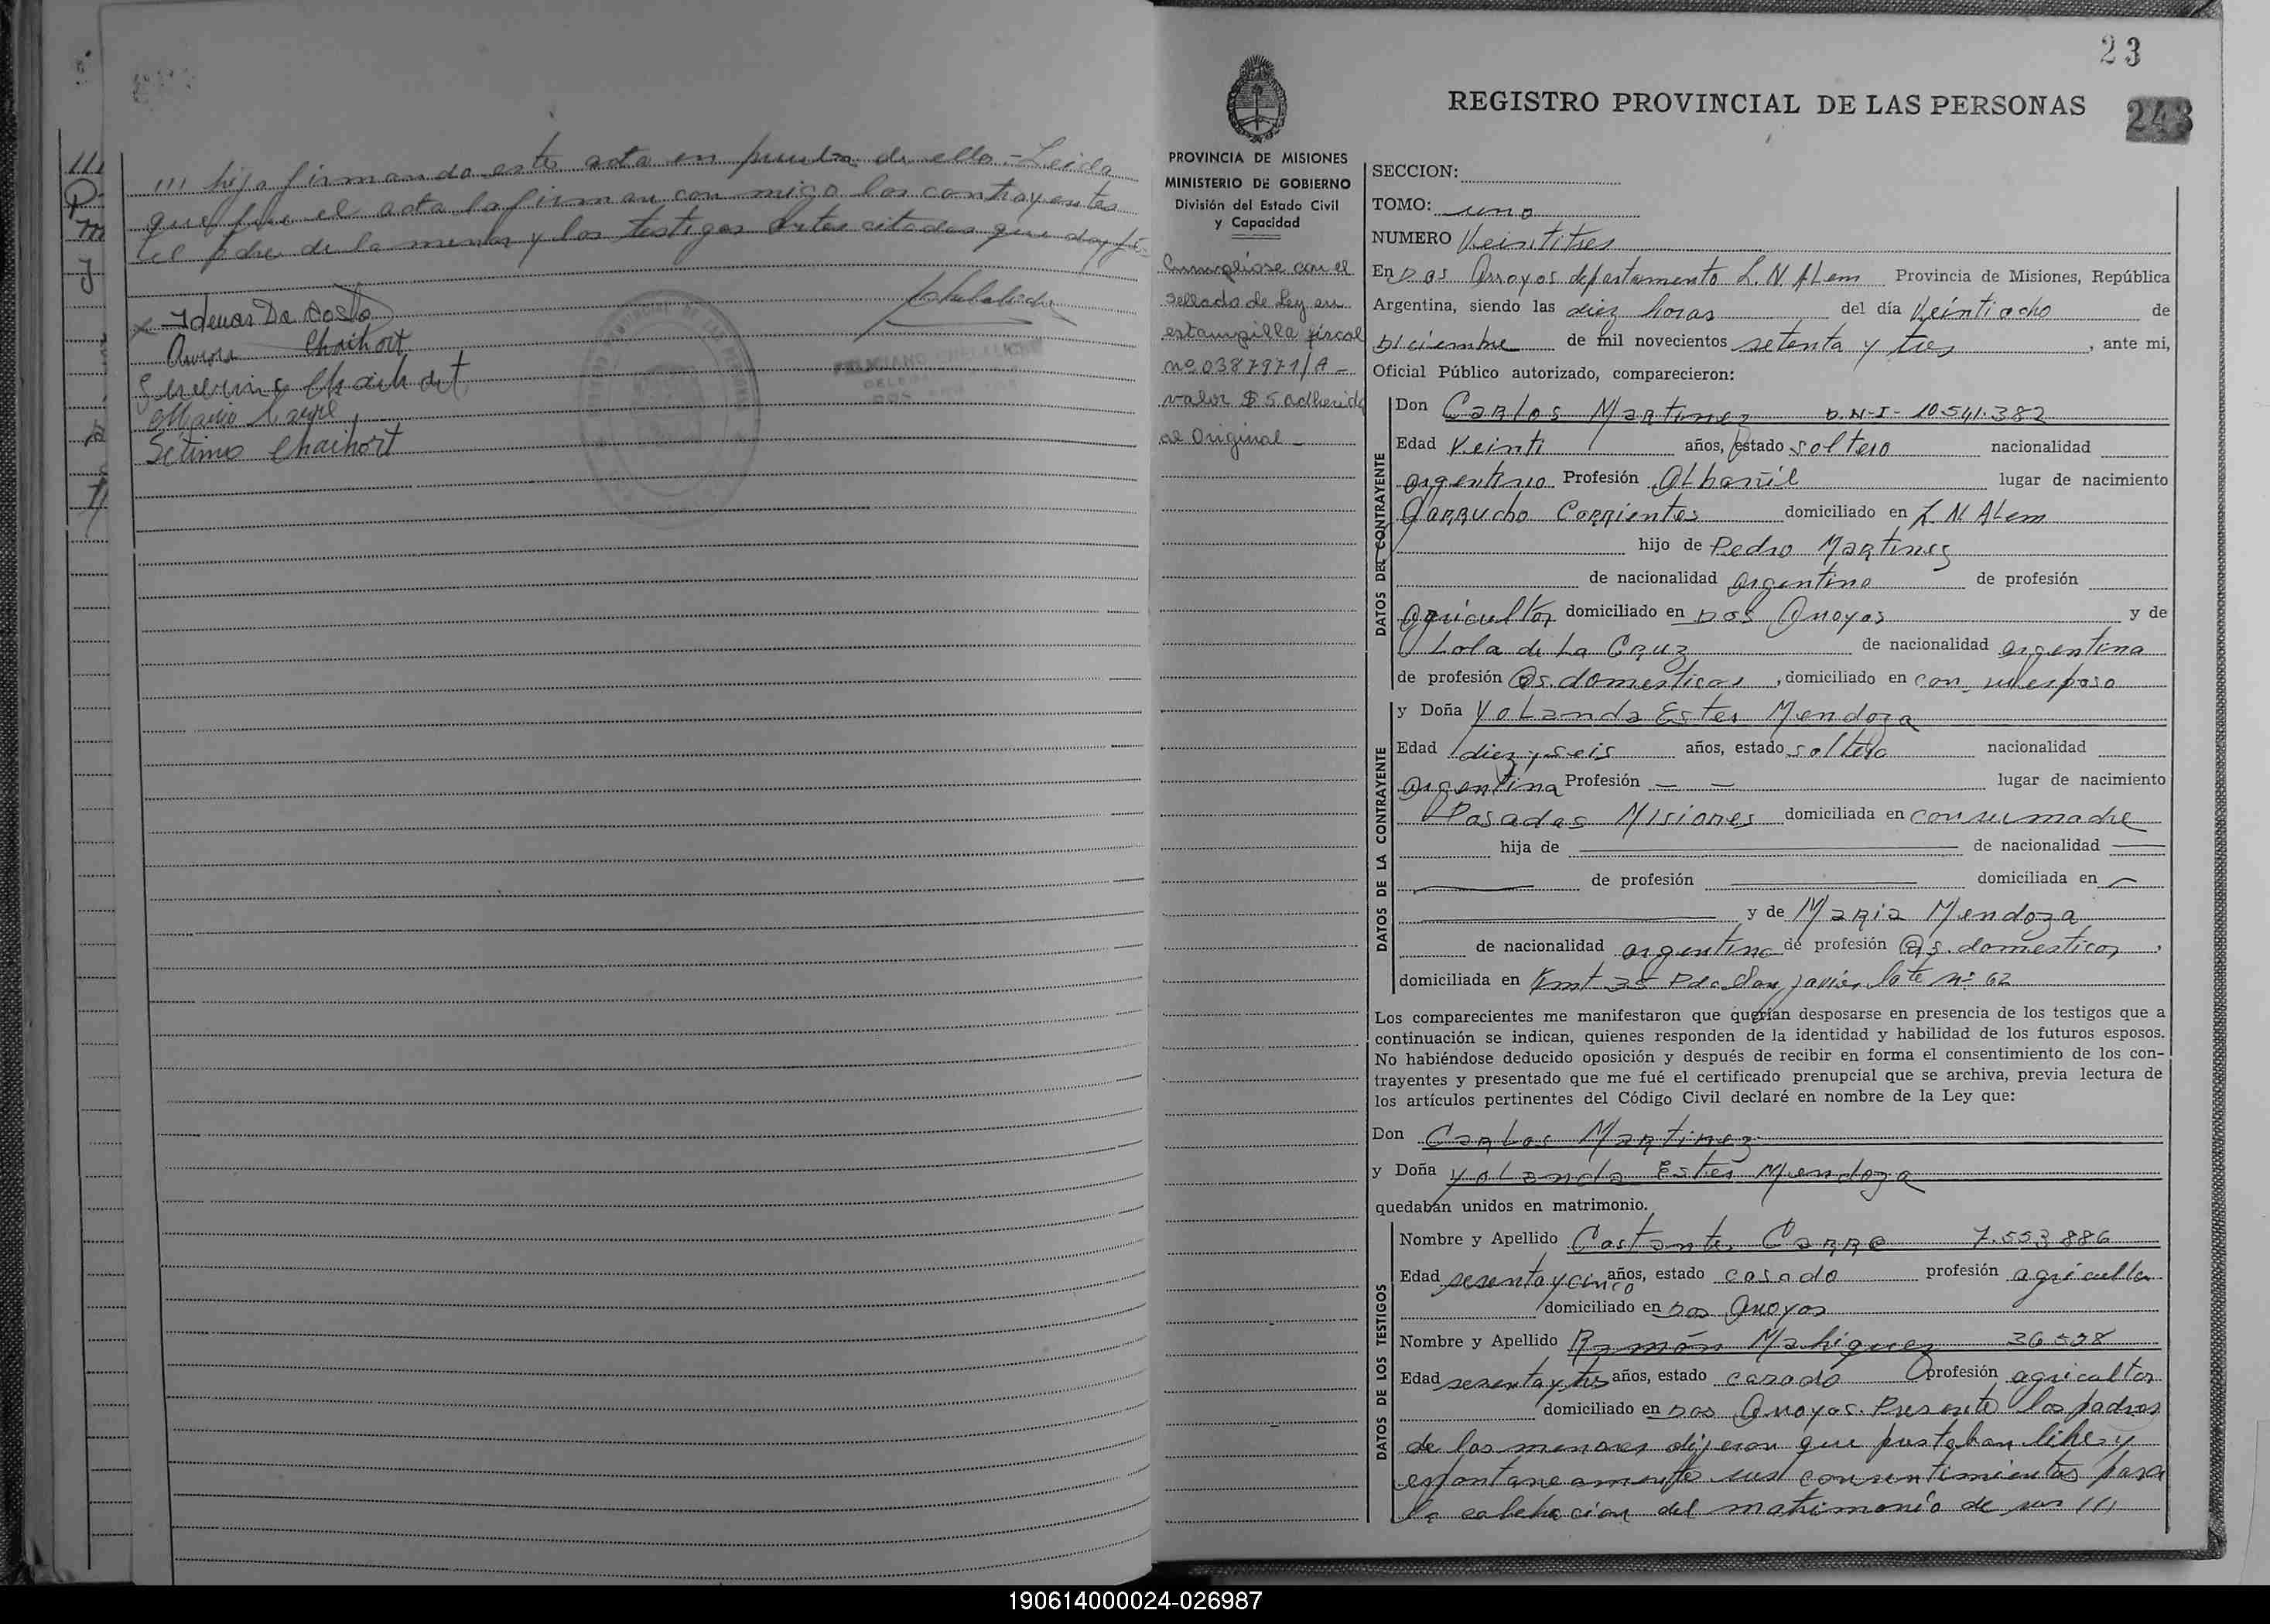 /// hija firmando este acta en prueba de ello - Leida
que fue el acta la firman con migo los contrayentes
el pdre de la menor y los testigos antes citados que doy fé-
Idemar Da Costa
Aurora Chaihort
Severino Chaihort
Mario
Setimo Chaihort
FELICIANO
23
REGISTRO PROVINCIAL DE LAS PERSONAS
243
PROVINCIA DE MISIONES
MINISTERIO DE GOBIERNO
División del Estado Civil
y Capacidad
Cumpliose con el
sellado de Ley en
estampilla fiscal
nº 0387971/A -
valor $ 5 adherido
al Original -
SECCION:
TOMO: uno
NUMERO Veintitres
En Dos Arroyos departamento L. N. Alem Provincia de Misiones, República
Argentina, siendo las diez horas del día Veintiocho de
Diciembre de mil novecientos setenta y tres, ante mi,
Oficial Público autorizado, comparecieron:
DATOS DEL CONTRAYENTE
Don Carlos Martinez D.N.I- 10.541.382
Edad Veinti años, estado soltero nacionalidad
argentino Profesión Albañil lugar de nacimiento
Garrucho Corrientes domiciliado en L N Alem
hijo de Pedro Martinez
de nacionalidad argentino de profesión
agricultor domiciliado en Dos Arroyos y de
Lola de La Cruz de nacionalidad argentina
de profesión Qs. domesticos, domiciliado en con su esposo
DATOS DE LA CONTRAYENTE
y Doña Yolanda Ester Mendoza
Edad diez y seis años, estado soltera nacionalidad
argentina Profesión — — lugar de nacimiento
Posadas Misiones domiciliada en con su madre
hija de — de nacionalidad —
— de profesión — domiciliada en —
— y de Maria Mendoza
de nacionalidad argentina de profesión Qs. domesticos,
domiciliada en Kmt 35 Pda San Javier lote Nº 62
Los comparecientes me manifestaron que querían desposarse en presencia de los testigos que a
continuación se indican, quienes responden de la identidad y habilidad de los futuros esposos.
No habiéndose deducido oposición y después de recibir en forma el consentimiento de los con-
trayentes y presentado que me fué el certificado prenupcial que se archiva, previa lectura de
los artículos pertinentes del Código Civil declaré en nombre de la Ley que:
Don Carlos Martinez
y Doña Yolanda Ester Mendoza
quedaban unidos en matrimonio.
DATOS DE LOS TESTIGOS
Nombre y Apellido Costante Carre 7.553.886
Edad sesenta y cinco años, estado casado profesión agricultor
domiciliado en Dos Arroyos
Nombre y Apellido Ramón Mahiquez 36598
Edad sesenta y tres años, estado casado profesión agricultor
domiciliado en Dos Arroyos. Presente los padres
de los menores dijeron que prestaban libre y
espontaneamente sus consentimientos para
la celebración del matrimonio de sus ///
190614000024-026987